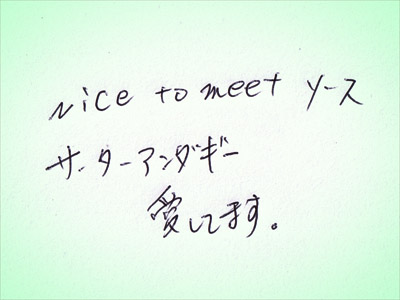 nice to meet ソース
サーターアンダギー
愛してます。